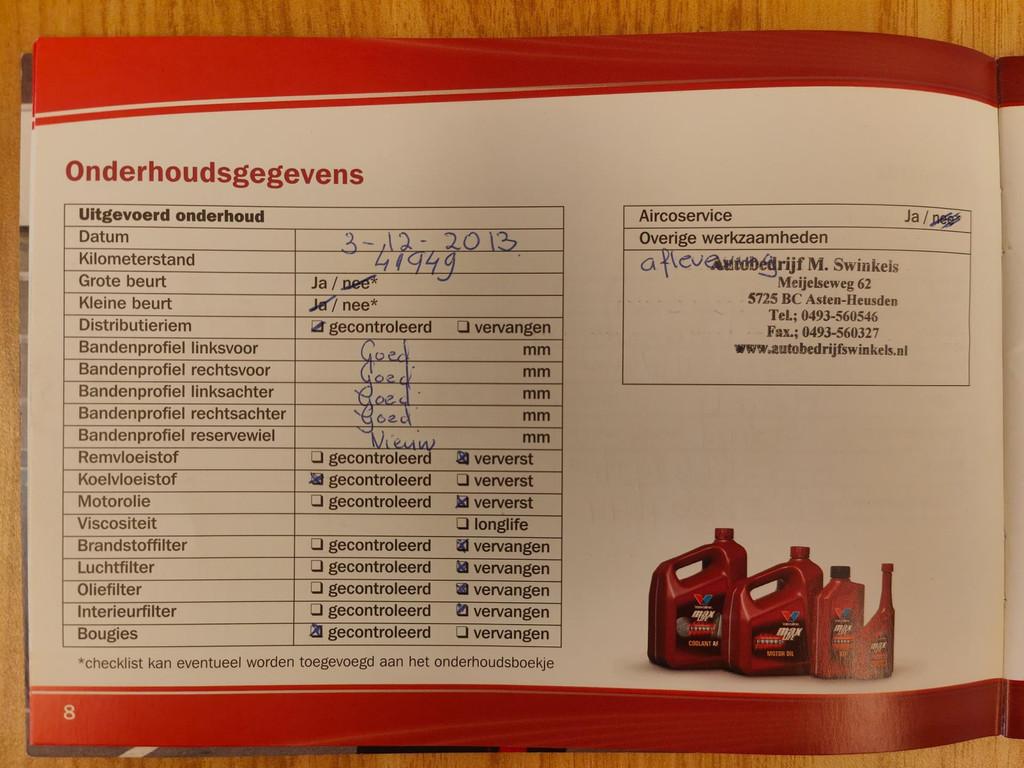 Onderhoudsgegevens
Uitgevoerd onderhoud
Datum 3-12-2013
Kilometerstand 41949
Grote beurt Ja / nee*
Kleine beurt Ja / nee*
Distributieriem gecontroleerd vervangen
Bandenprofiel linksvoor Goed mm
Bandenprofiel rechtsvoor Goed mm
Bandenprofiel linksachter Goed mm
Bandenprofiel rechtsachter Goed mm
Bandenprofiel reservewiel Nieuw mm
Remvloeistof gecontroleerd ververst
Koelvloeistof gecontroleerd ververst
Motorolie gecontroleerd ververst
Viscositeit longlife
Brandstoffilter gecontroleerd vervangen
Luchtfilter gecontroleerd vervangen
Oliefilter gecontroleerd vervangen
Interieurfilter gecontroleerd vervangen
Bougies gecontroleerd vervangen
*checklist kan eventueel worden toegevoegd aan het onderhoudsboekje
8
Aircoservice Ja / nee
Overige werkzaamheden
aflevering
Autobedrijf M. Swinkels
Meijelseweg 62
5725 BC Asten-Heusden
Tel.; 0493-560546
Fax.; 0493-560327
www.autobedrijfswinkels.nl
MAX
COOLANT
MAX
MOTOR OIL
MAX
MAX